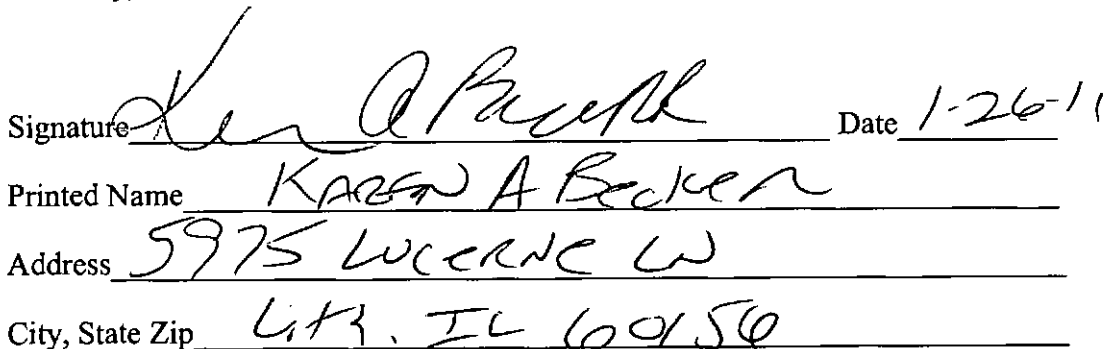 Signature Karen A Becker Date 1-26-11
Printed Name KAREN A Becker
Address 5975 LUCERNE LN
City, State Zip L.I.TH. IL 60156